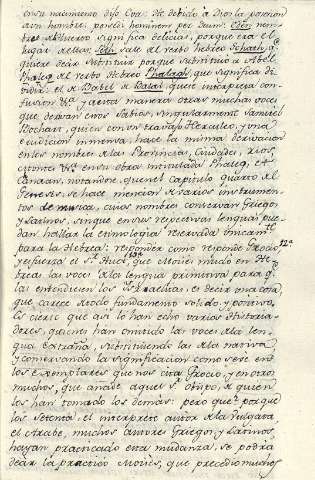 en su nacimiento dijo Eva: He debido a Dios la posesion
de un hombre, possedi hominem per Deum: Eden, nom-
bre del Huerto significa delicia, porque era el
lugar de ellas: Seth sale del verbo hebreo Schath, q.
quiere decir substituir porque substituio a Abel:
Phaleg del verbo Hebreo Phalagh, que significa di-
vidir: el de Babel de Balal, que interpreta con-
fusion &a. y de esta manera otras muchas voces
que derivan otros Sabios, singularmente Samuel
Bochart, quien con un travajo Herculeo, y una
erudicion inmensa hace la misma derivacion
en los nombres de las Provincias, Ciudades, rios,
montes &a. en su obra intitulada Phaleg, et
Canaan, notandose, que en el capitulo quarto del
Genesis se hace mencion de varios instrumen-
tos de musica, cuios nombres conservan Griegos,
y Latinos, sin que en sus respectivas lenguas pue-
dan hallar la etimologia reservada unicam.te
para la Hebrea: responder como responde Grocio,
y esfuerza el Ilt. Huet, que Moises mudó en He-
breas las voces de la lengua primitiva para q.
las entendiesen los Israelitas, es decir una cosa,
que carece de todo fundamento solido, y positivo,
Es cierto que así lo han echo varios Historia-
dores, quienes han omitido las voces de la len-
gua extraña, substituiendo las de la nativa
y conservando la significacion como se ve en
los exemplares que nos cita Grocio, y en otros
muchos, que añade aquel Sr. Obispo, de quien
los han tomado los demas: pero que? porque
los Setenta, el interprete autor de la Vulgata
el Arabe, muchos autores Griegos, y Latinos,
hayan practicado esta mudanza, se podrá
decir la practicó Moises, que precedió muchos